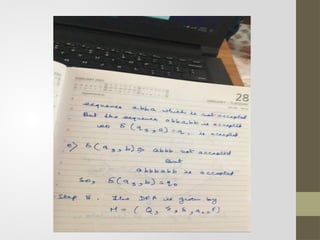 28
sequence abba which is not accepted
But the sequence abbabb is accepted
so δ(q3,a)=q, is accepted
o) δ(q3,b)⇒ abbb not accepted
But
abbbabb is accepted
So, δ(q3,b)=q0
Step 5. The DFA is given by
M= (Q, Σ, δ, q0, F)